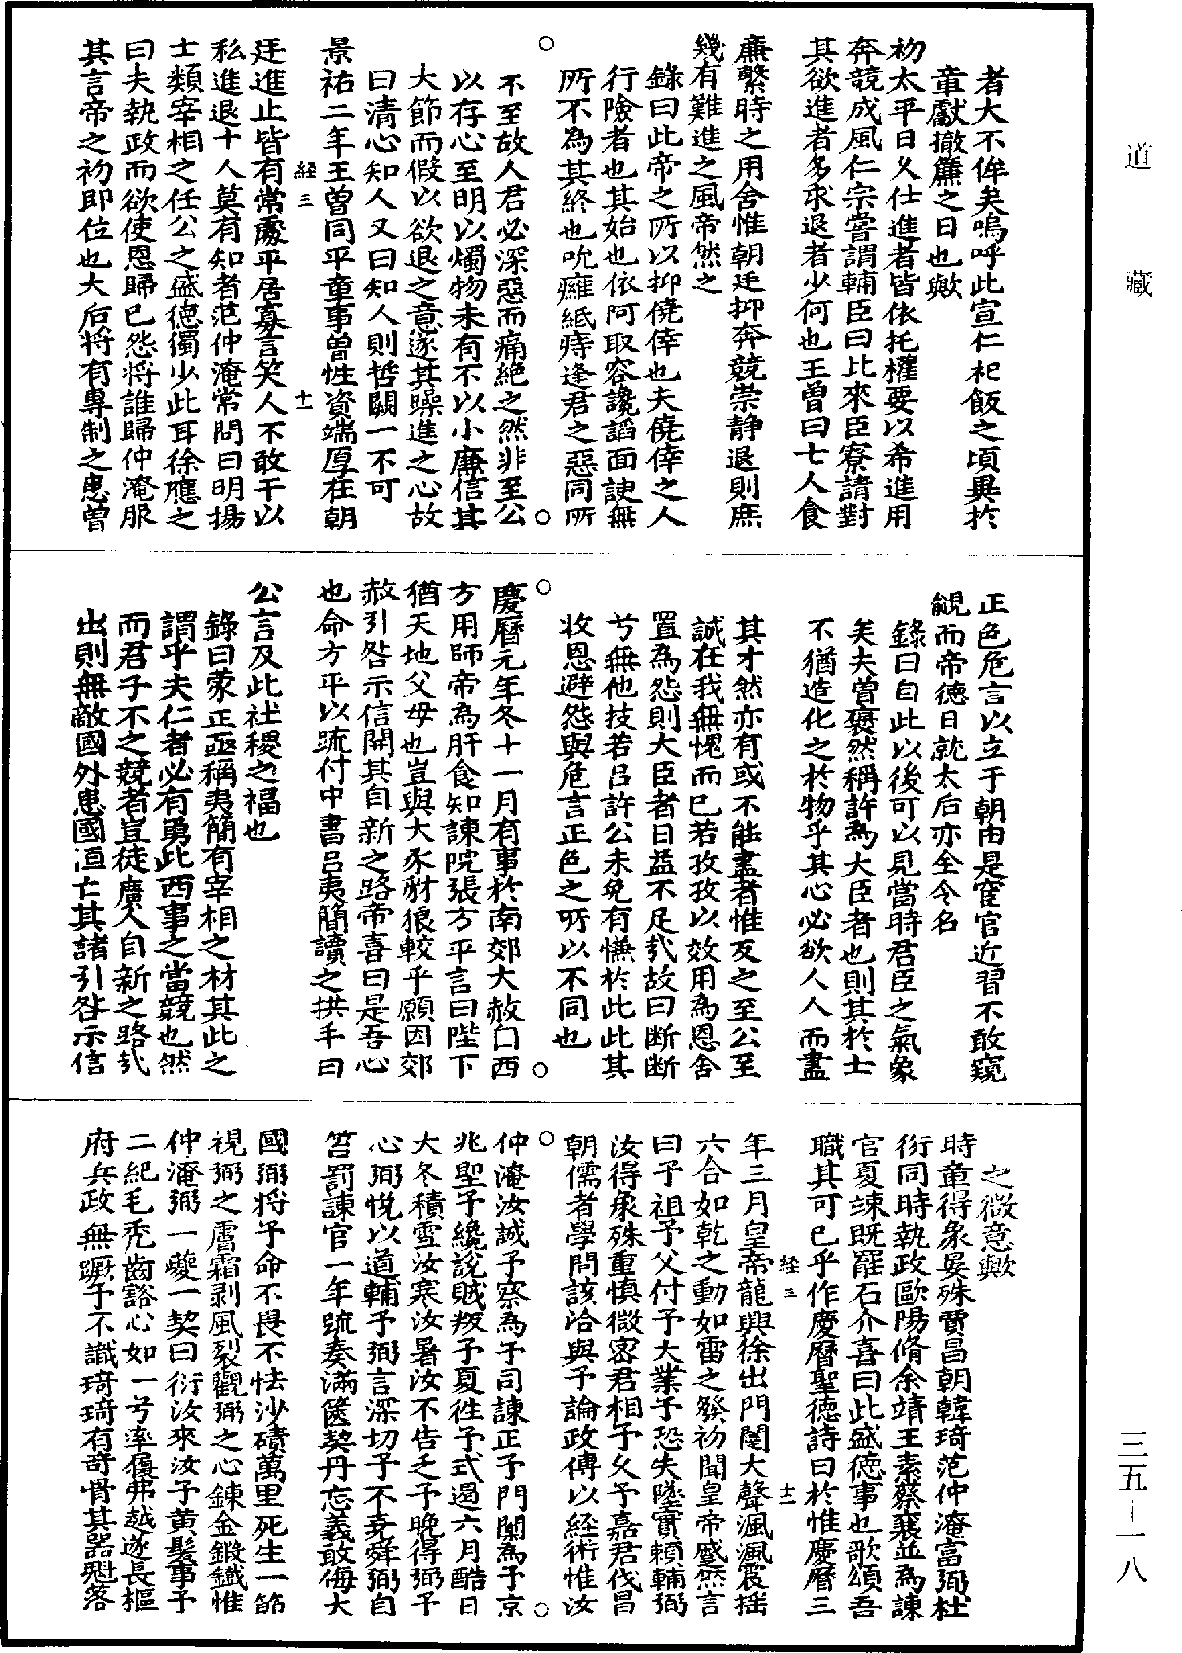 道藏
者大不侔矣嗚呼此宣仁祀飯之頃異於
章獻撤簾之日也歟
初太平日久仕進者皆依托權要以希進用
奔競成風仁宗嘗謂輔臣曰比來臣寮請對
其欲進者多求退者少何也王曾曰士人貪
廉繫時之用舍惟朝廷抑奔競崇静退則庶
幾有難進之風帝然之
錄曰此帝之所以抑僥倖也夫僥倖之人
行險者也其始也依阿取容讒謟面諛無
所不為其終也吮癰䑛痔逢君之惡同所
不至故人君必深惡而痛絶之然非至公
以存心至明以燭物未有不以小廉信其
大節而假以欲退之意遂其躁進之心故
曰清心知人又曰知人則哲闕一不可
景祐二年王曾同平章事曾性資端厚在朝
廷進止皆有常處平居寡言笑人不敢干以
私進退士人莫有知者范仲淹常問曰明揚
士類宰相之任公之盛德獨少此耳徐應之
曰夫執政而欲使恩歸已怨將誰歸仲淹服
其言帝之初即位也太后將有專制之患曾
経三
十一
正色危言以立于朝由是宦官近習不敢窺
覦而帝德日就太后亦全令名
錄曰自此以後可以見當時君臣之氣象
矣夫曾褒然稱許為大臣者也則其於士
不猶造化之於物乎其心必欲人人而盡
其才然亦有或不能盡者惟反之至公至
誠在我無愧而已若孜孜以效用為恩舍
置為怨則大臣者日益不足矣故曰断断
兮無他技若吕許公未免有慊於此此其
收恩避怨與危言正色之所以不同也
慶曆元年冬十一月有事於南郊大赦囗西
方用師帝為旰食知諫院張方平言曰陛下
猶天地父母也豈與犬豕豺狼較乎願因郊
赦引咎示信開其自新之路帝喜曰是吾心
也命方平以疏付中書吕夷簡讀之拱手曰
公言及此社稷之福也
錄曰蒙正亟稱夷簡有宰相之材其此之
謂乎夫仁者必有勇此西事之當競也然
而君子不之競者豈徒廣人自新之路哉
出則無敵國外患國恒亡其諸引咎示信
之微意歟
時章得象晏殊賈昌朝韓琦范仲淹富弼杜
衍同時執政歐陽脩余靖王素蔡襄並為諫
官夏竦既罷石介喜曰此盛德事也歌頌吾
職其可已乎作慶曆聖德詩曰於惟慶曆三
年三月皇帝龍興徐出門闥大聲渢渢震搖
六合如乾之動如雷之發初聞皇帝蹙然言
曰予祖予父付予大業予恐失墜實賴輔弼
汝得象殊重慎微密君相予久予嘉君伐昌
朝儒者學問該洽與予論政傅以経術惟汝
仲淹汝誠予察為予司諫正予門闑為予京
兆聖予纔說賊叛予夏徃予式遏六月酷日
大冬積雪汝寒汝暑汝不告乏予晚得弼予
心弼悅以道輔予弼言深切予不堯舜弼自
笞罰諫官一年疏奏滿篋契丹忘義敢侮大
國弼將予命不畏不怯沙磧萬里死生一節
視弼之膚霜剥風裂觀弼之心鍊金鍛鐵惟
仲淹弼一夔一契曰衍汝來汝予黄髮事予
二紀毛秃齒豁心如一兮率履弗越遂長樞
府兵政無蹶予不識琦琦有奇骨其器魁落
経三
十二
三五－一八